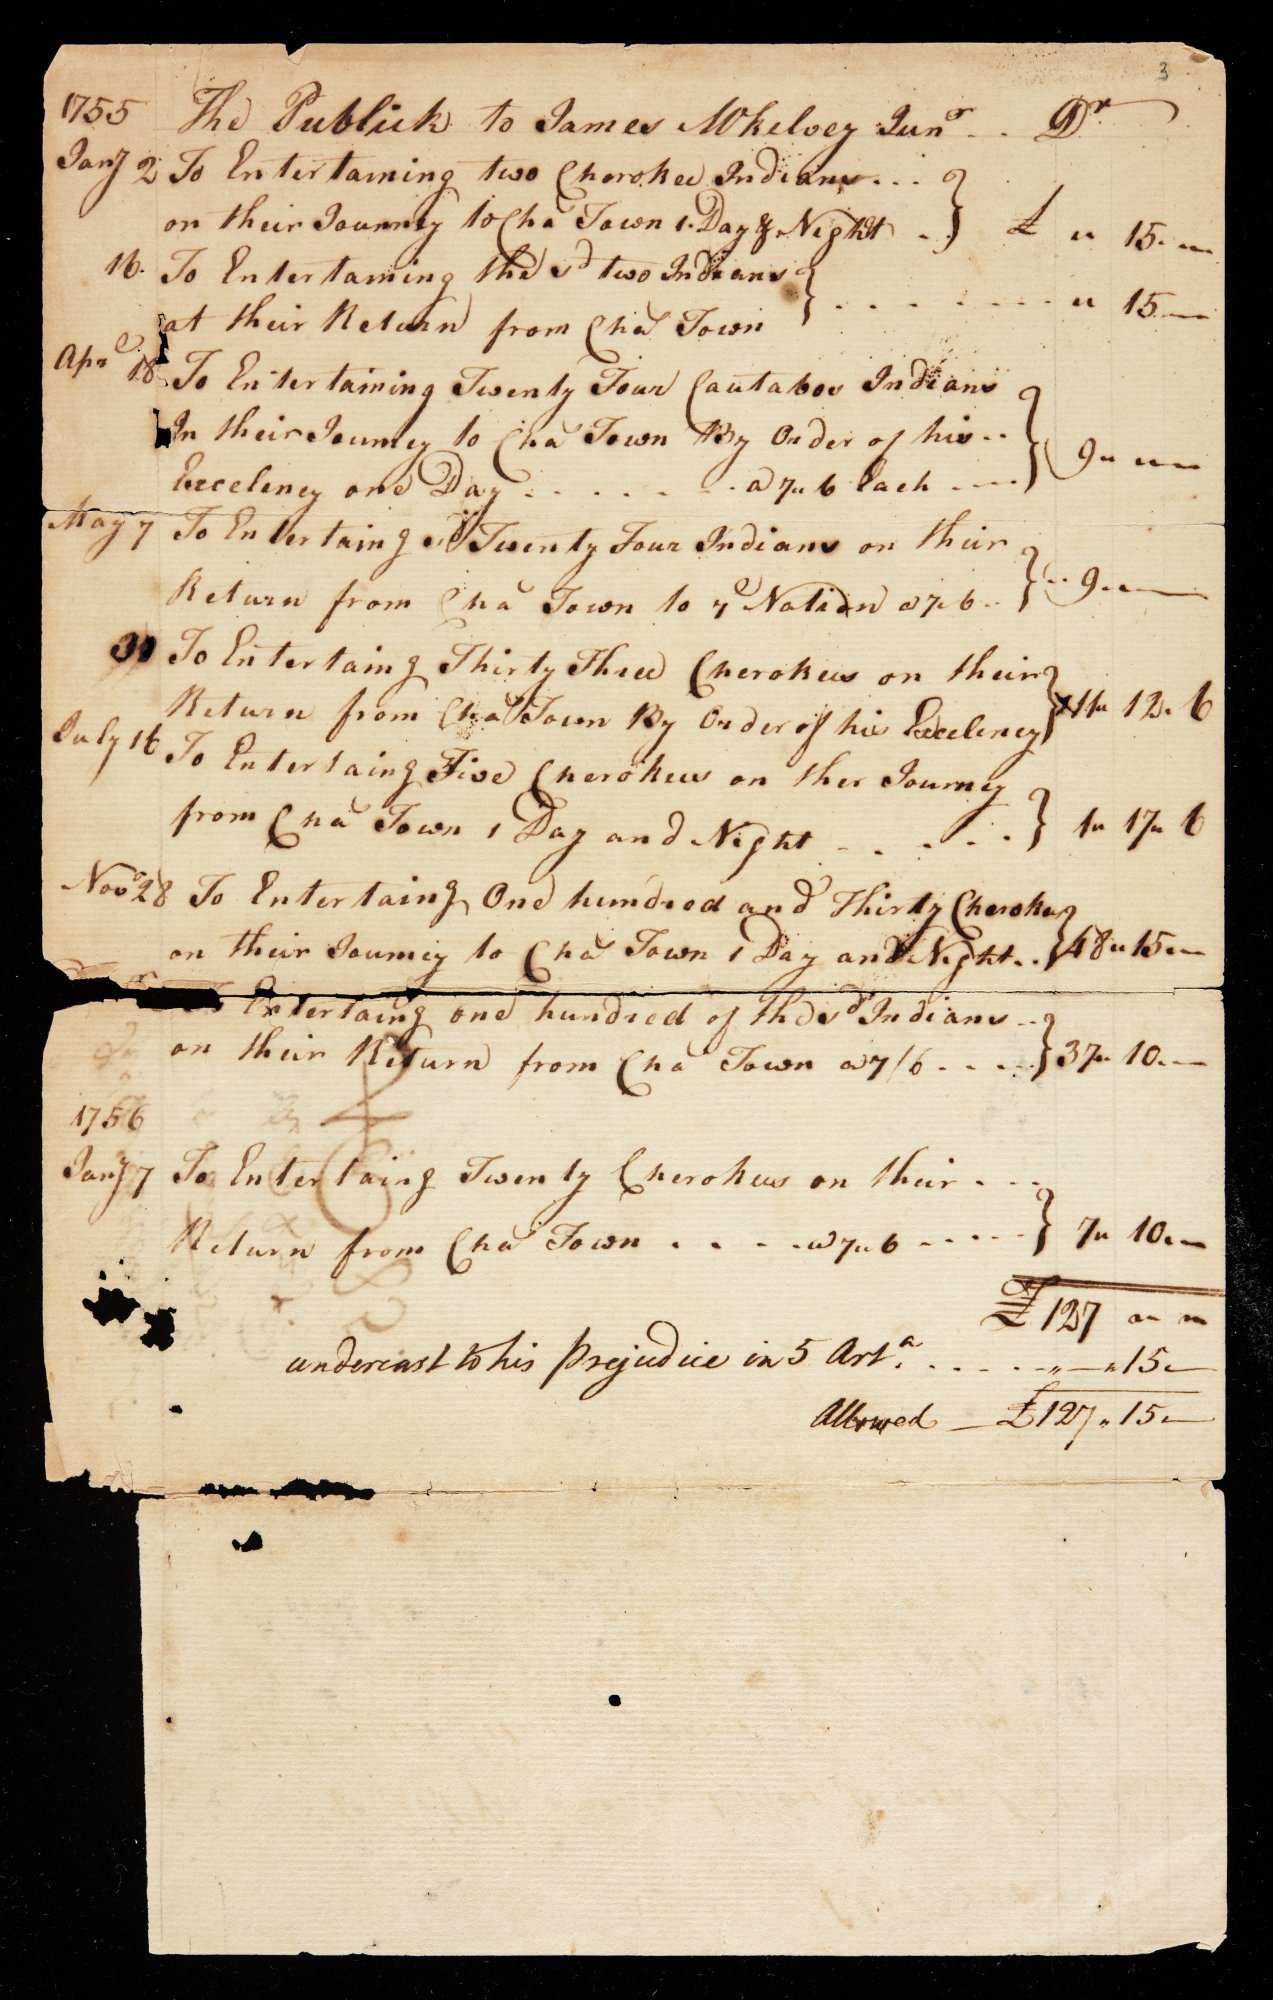 3
1755 The Publick to James Mckelvey Junr .. Dr
Jany 2 To Entertaining two Cherokee Indians ...
on their Journey to Cha Town 1 Day & Night .. £ " 15 "
16. To Entertaining the sd two Indians
at their Return from Cha Town . . . . . . . . " 15
Apre 18 To Entertaining Twenty Four Cautabos Indians
In their Journey to Cha Town By Order of his ..
Excelency one Day . . . . . . . a 7" 6 Each .... 9 " "
May 7 To Entertaing sd Twenty Four Indians on their
Return from Cha Town to ye Nation a 7" 6 .. 9 "
To Entertaing Thirty Three Cherokees on their
Return from Cha Town By Order of his Excelency 11" 12" 6
July 16 To Entertaing Five Cherokees on ther Journey
from Cha Town 1 Day and Night . . . . . . 1" 17" 6
Novr 28 To Entertaing One hundred and Thirty Cherokes
on their Journiy to Cha Town 1 Day and Night .. 48" 15 "
Entertaing one hundred of the sd Indians ..
on their Return from Cha Town a 7/6 . . . . 37" 10 "
1756
Jany 7 To Entertaing Twenty Cherokees on their . . .
Return from Cha Town . . . . a 7" 6 ..... 7" 10 "
£ 127 " "
undercast to his prejudice in 5 Arta. . . . . . " — " 15 "
Allowed — £ 127 " 15 "